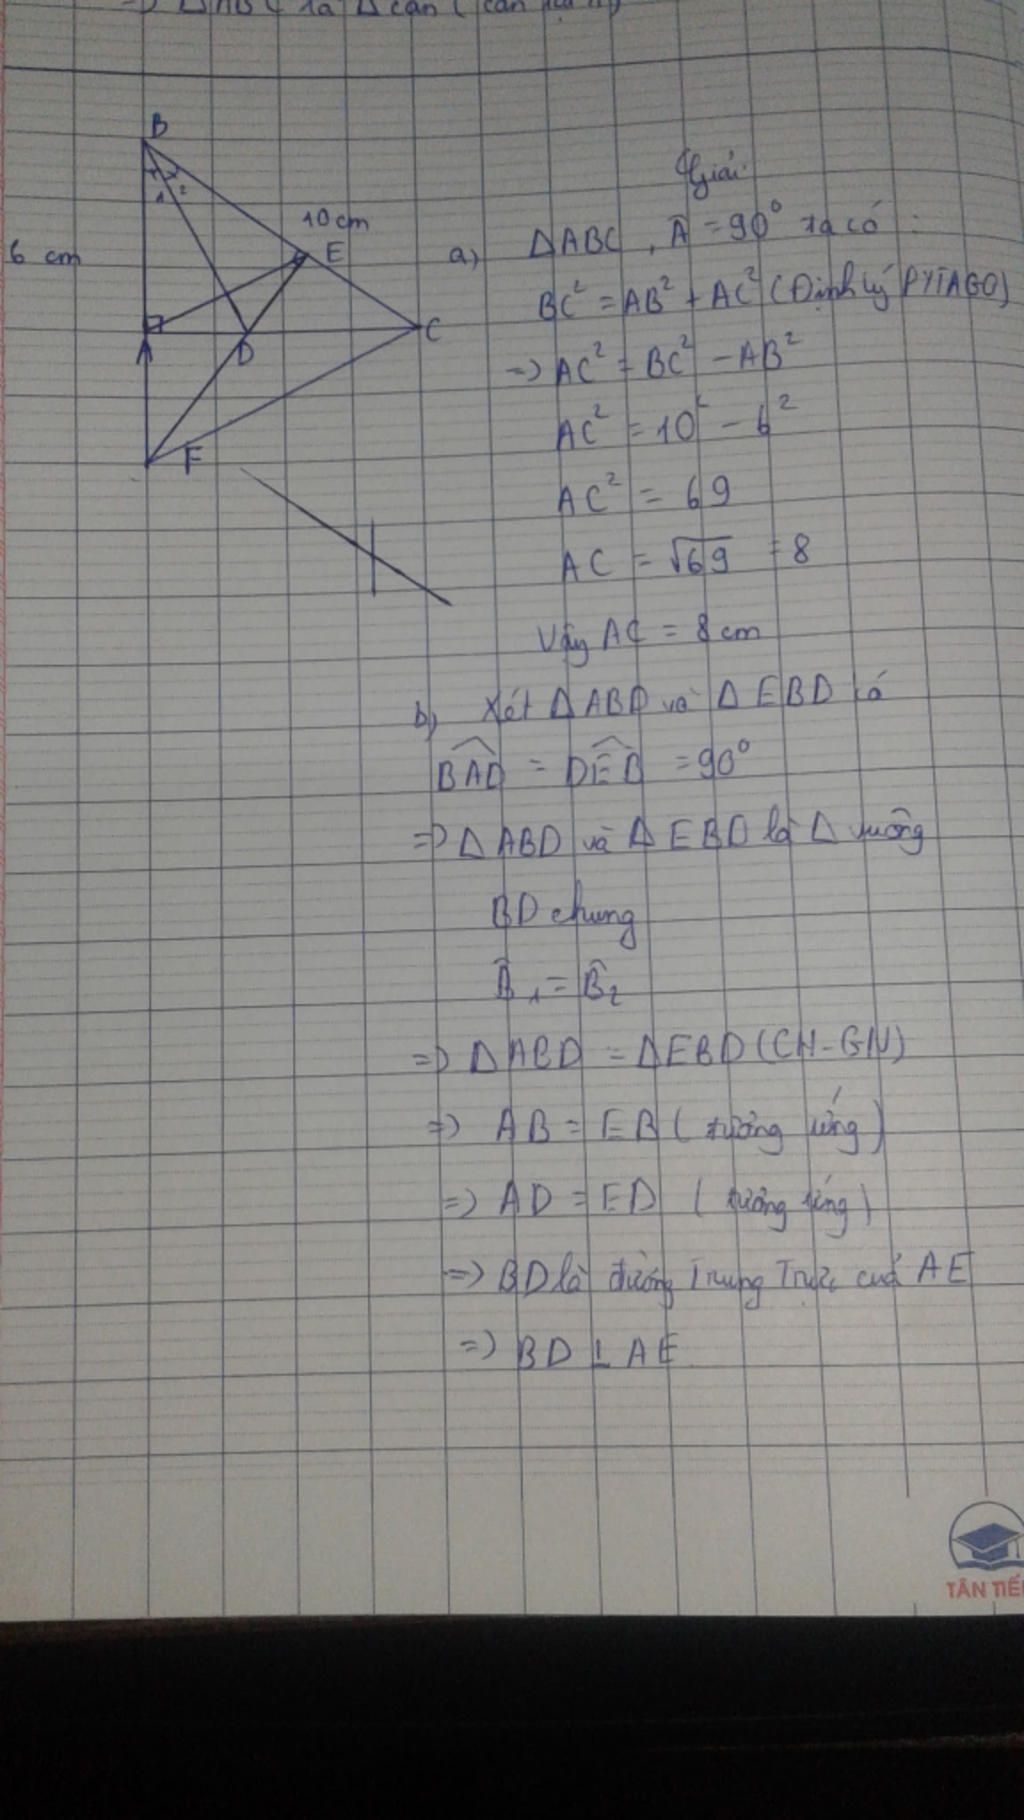 B
1 2
10 cm
6 cm
E
A
D
C
F
Giải
a) ΔABC, Â = 90° ta có :
BC² = AB² + AC² (Định lý PYTAGO)
=> AC² = BC² - AB²
AC² = 10² - 6²
AC² = 69
AC = √69 = 8
Vậy AC = 8 cm
b) Xét ΔABD và ΔEBD có
BAD = DEB = 90°
=> ΔABD và ΔEBD là Δ vuông
BD chung
B̂₁ = B̂₂
=> ΔABD = ΔEBD (CH-GN)
=> AB = EB (tương ứng)
=> AD = ED (tương ứng)
=> BD là đường Trung Trực của AE
=> BD ⊥ AE
TÂN TIẾ